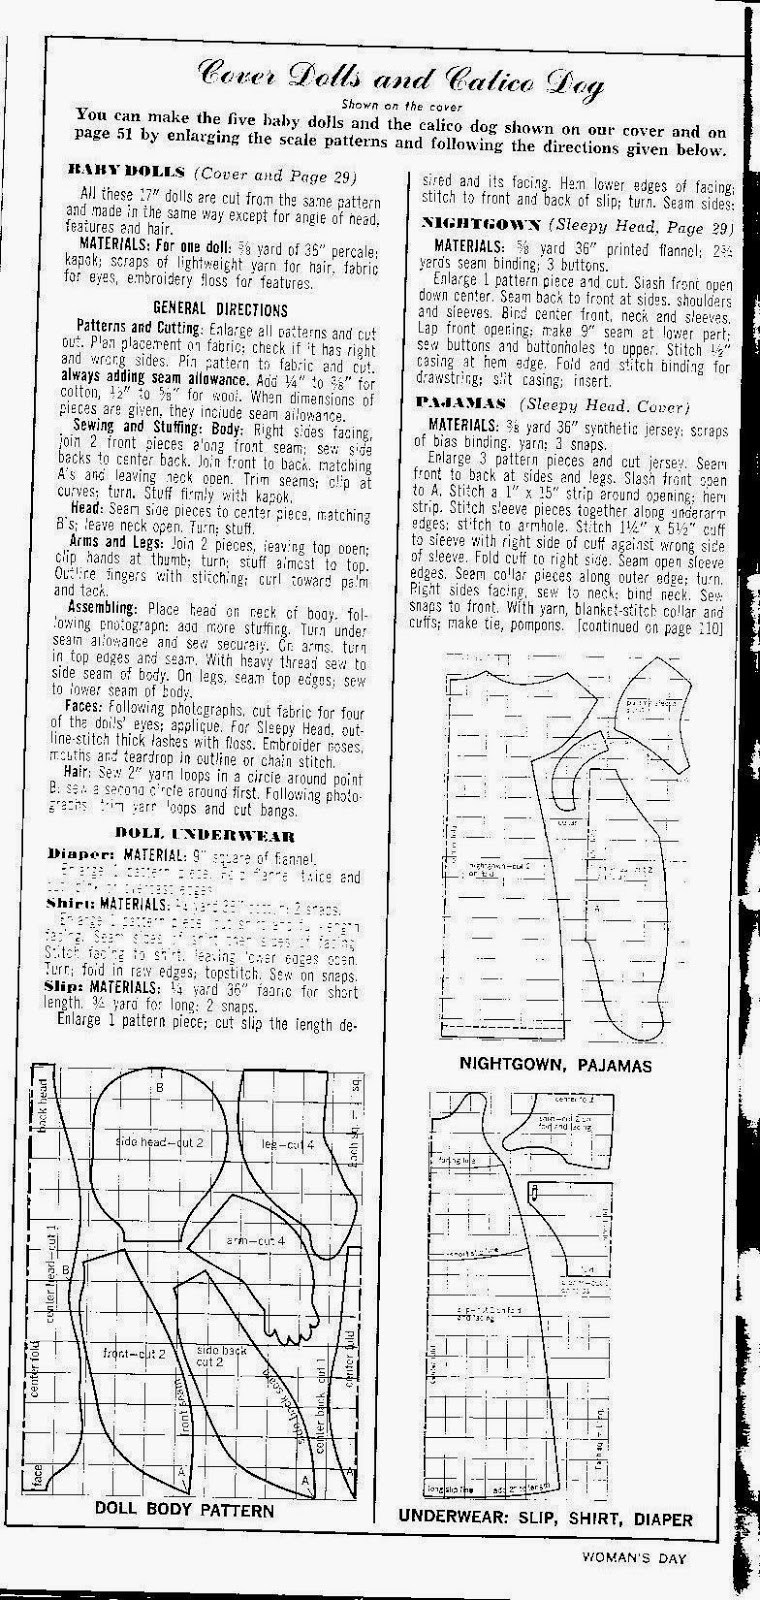 Cover Dolls and Calico Dog
Shown on the cover
You can make the five baby dolls and the calico dog shown on our cover and on
page 51 by enlarging the scale patterns and following the directions given below.
BABY DOLLS (Cover and Page 29)
All these 17" dolls are cut from the same pattern
and made in the same way except for angle of head,
features and hair.
MATERIALS: For one doll: ⅝ yard of 36" percale;
kapok; scraps of lightweight yarn for hair, fabric
for eyes, embroidery floss for features.
GENERAL DIRECTIONS
Patterns and Cutting: Enlarge all patterns and cut
out. Plan placement on fabric; check if it has right
and wrong sides. Pin pattern to fabric and cut,
always adding seam allowance. Add ¼" to ⅜" for
cotton, ½" to ⅝" for wool. When dimensions of
pieces are given, they include seam allowance.
Sewing and Stuffing: Body: Right sides facing,
join 2 front pieces along front seam; sew side
backs to center back. Join front to back, matching
A's and leaving neck open. Trim seams; clip at
curves; turn. Stuff firmly with kapok.
Head: Seam side pieces to center piece, matching
B's; leave neck open. Turn; stuff.
Arms and Legs: Join 2 pieces, leaving top open;
clip hands at thumb; turn; stuff almost to top.
Outline fingers with stitching; curl toward palm
and tack.
Assembling: Place head on neck of body, fol-
lowing photograph; add more stuffing. Turn under
seam allowance and sew securely. On arms, turn
in top edges and seam. With heavy thread sew to
side seam of body. On legs, seam top edges; sew
to lower seam of body.
Faces: Following photographs, cut fabric for four
of the dolls' eyes; applique. For Sleepy Head, out-
line-stitch thick lashes with floss. Embroider noses,
mouths and teardrop in outline or chain stitch.
Hair: Sew 2" yarn loops in a circle around point
B; sew a second circle around first. Following photo-
graphs, trim yarn loops and cut bangs.
DOLL UNDERWEAR
Diaper: MATERIAL: 9" square of flannel.
Enlarge 1 pattern piece. Fold flannel twice and
edges
Shirt: MATERIALS: ¼ yard 36" 2 snaps.
Enlarge 1 pattern piece
facing. Seam sides of shirt then sides of facing
Stitch facing to shirt, leaving lower edges open.
Turn; fold in raw edges; topstitch. Sew on snaps.
Slip: MATERIALS: ¼ yard 36" fabric for short
length, ¾ yard for long; 2 snaps.
Enlarge 1 pattern piece; cut slip the length de-
sired and its facing. Hem lower edges of facing;
stitch to front and back of slip; turn. Seam sides.
NIGHTGOWN (Sleepy Head, Page 29)
MATERIALS: ⅝ yard 36" printed flannel; 2¾
yards seam binding; 3 buttons.
Enlarge 1 pattern piece and cut. Slash front open
down center. Seam back to front at sides, shoulders
and sleeves. Bind center front, neck and sleeves.
Lap front opening; make 9" seam at lower part;
sew buttons and buttonholes to upper. Stitch ½"
casing at hem edge. Fold and stitch binding for
drawstring; slit casing; insert.
PAJAMAS (Sleepy Head, Cover)
MATERIALS: ⅜ yard 36" synthetic jersey; scraps
of bias binding, yarn; 3 snaps.
Enlarge 3 pattern pieces and cut jersey. Seam
front to back at sides and legs. Slash front open
to A. Stitch a 1" x 15" strip around opening; hem
strip. Stitch sleeve pieces together along underarm
edges; stitch to armhole. Stitch 1¼" x 5½" cuff
to sleeve with right side of cuff against wrong side
of sleeve. Fold cuff to right side. Seam open sleeve
edges. Seam collar pieces along outer edge; turn.
Right sides facing, sew to neck; bind neck. Sew
snaps to front. With yarn, blanket-stitch collar and
cuffs; make tie, pompons. [continued on page 110]
collar
nightgown—cut 2
on fold
A
NIGHTGOWN, PAJAMAS
back head
B
side head—cut 2
leg—cut 4
each sq. = 1 sq.
arm—cut 4
center head—cut 1
B
center fold
face
front—cut 2
front seam
A
side back
cut 2
side back seam
A
center back cut 1
center fold
A
DOLL BODY PATTERN
center fold
fold and facing
facing line
short slip line
slip—cut 2 on fold
and facing
center fold
long slip line
add 2" to length
UNDERWEAR: SLIP, SHIRT, DIAPER
WOMAN'S DAY